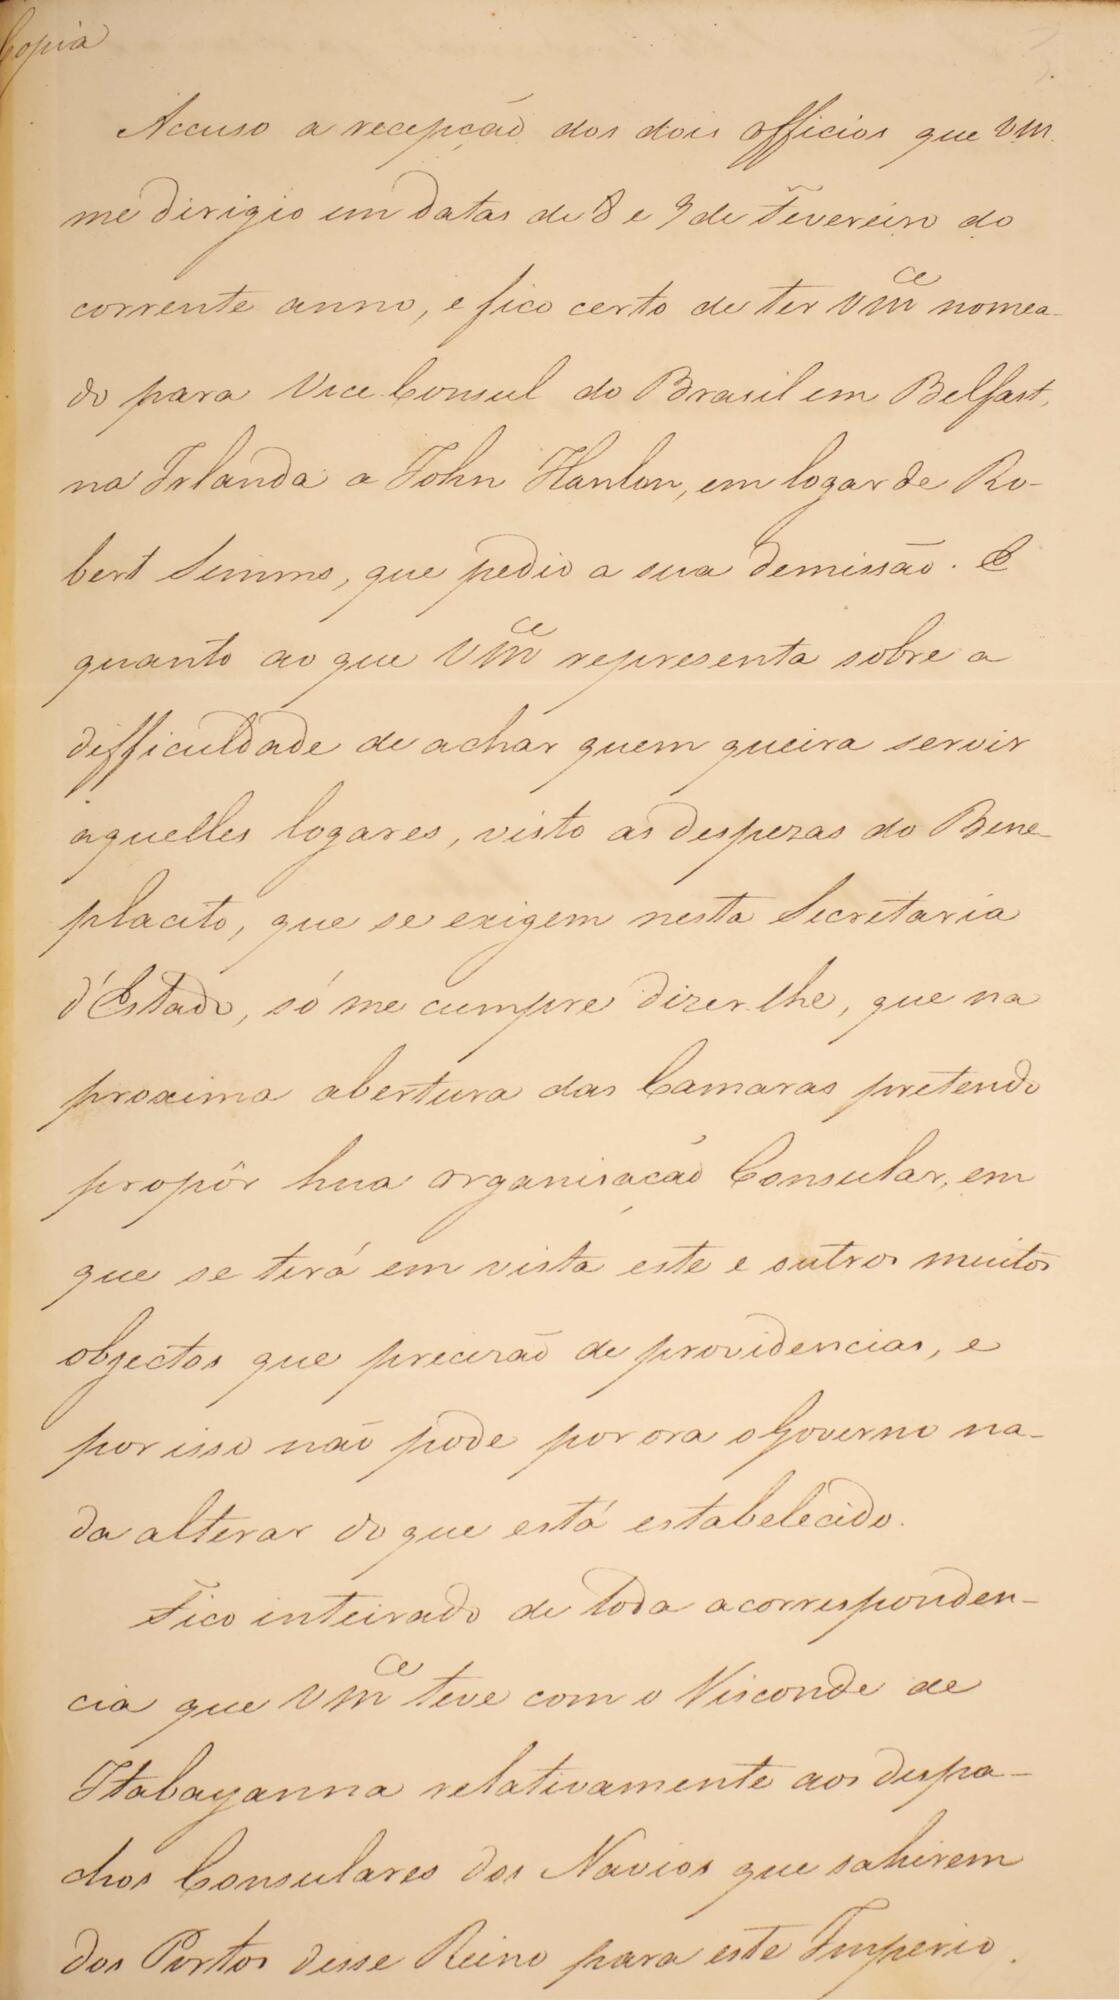 Copia
Accuso a recepção dos dois officios que Vm.
me dirigio em datas de 8 e 9 de Fevereiro do
corrente anno, e fico certo de ter Vm.ce nomea-
do para Vice Consul do Brasil em Belfast,
na Irlanda a John Hanlon, em logar de Ro-
bert Simms, que pedio a sua demissão. E
quanto ao que Vm.ce representa sobre a
difficuldade de achar quem queira servir
aquelles logares, visto as despezas do Bene-
placito, que se exigem nesta Secretaria
d'Estado, só me cumpre dizer-lhe, que na
proxima abertura das Camaras pretendo
propôr hua organisação Consular, em
que se terá em vista este e outros muitos
objectos que precizão de providencias, e
por isso não pode por ora o Governo na-
da alterar do que está estabelecido.
Fico inteirado de toda a corresponden-
cia que Vm.ce teve com o Visconde de
Itabayanna relativamente aos despa-
chos Consulares dos Navios que sahirem
dos Portos desse Reino para este Imperio.